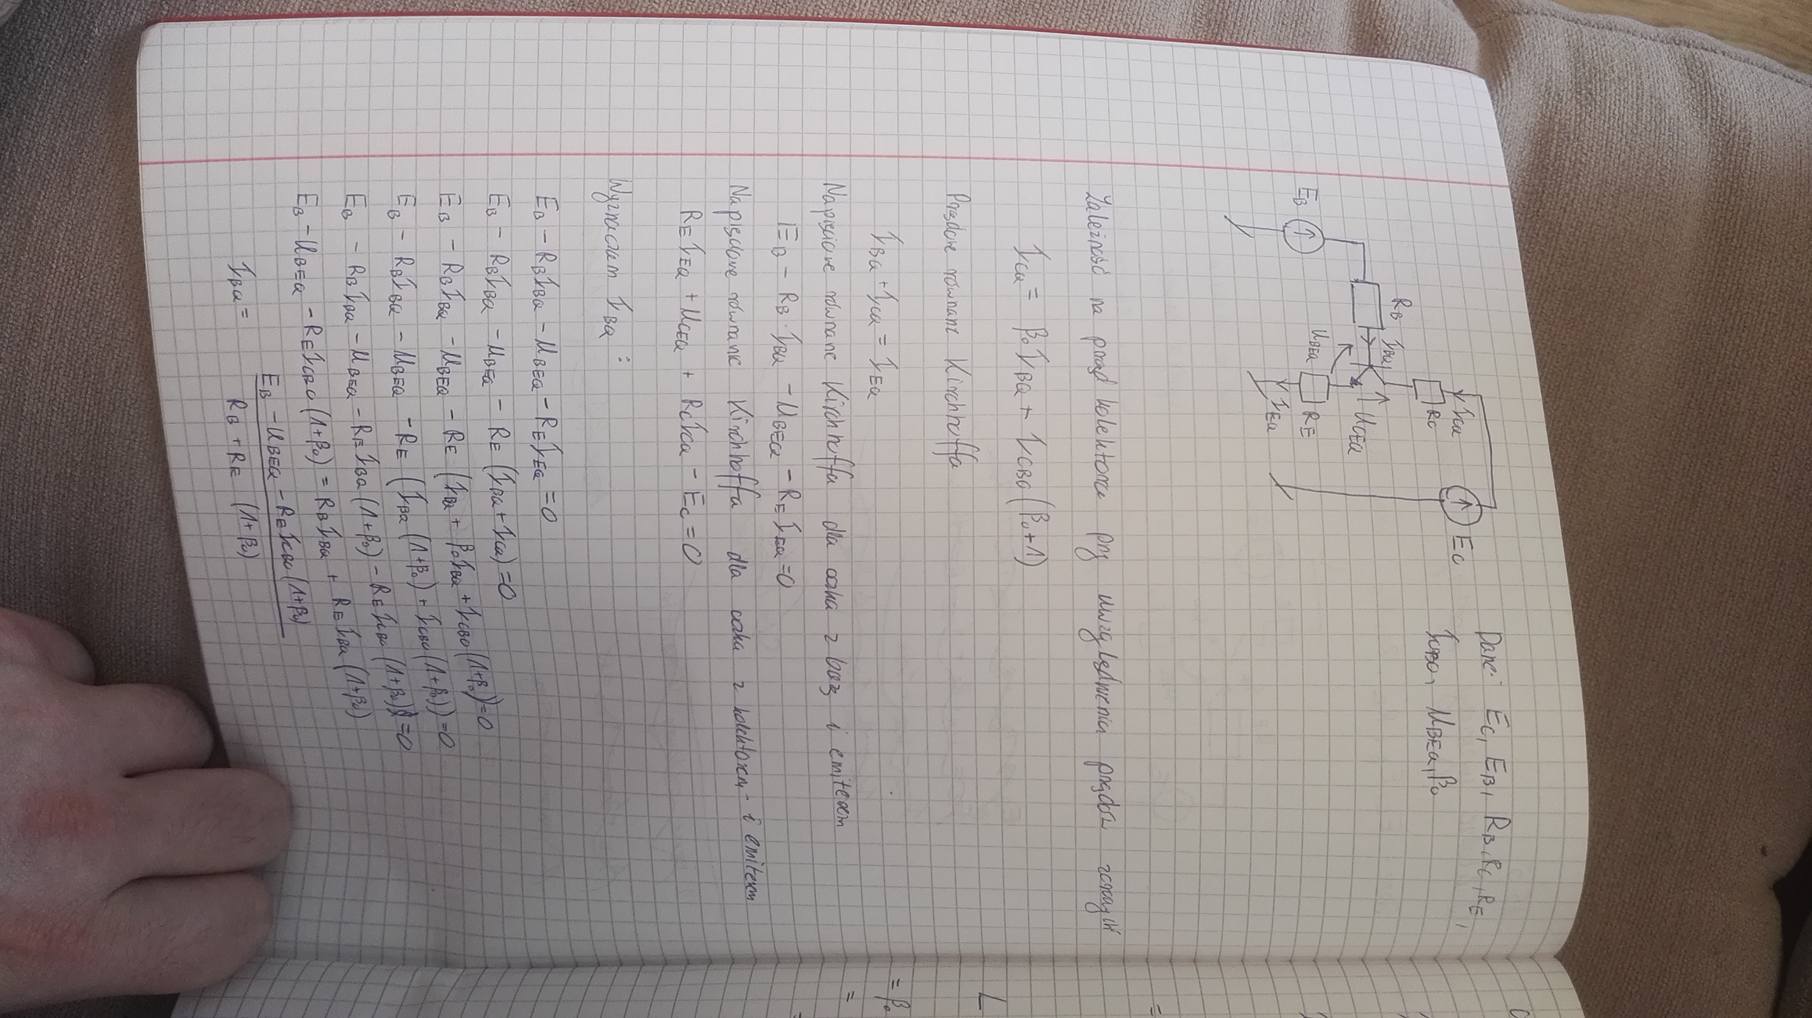 Dane: EC, EB, RB, RC, RE,
ICBO, UBEQ, β0
ICQ
RC
EC
RB
IBQ
UCEQ
UBEQ
EB
RE
IEQ
Zależność na prąd kolektora przy uwzględnieniu prądów zerowych
ICQ = β0 IBQ + ICBO (β0+1)
Prądowe równanie Kirchhoffa
IBQ + ICQ = IEQ
Napięciowe równanie Kirchhoffa dla oczka z bazą i emiterem
EB - RB · IBQ - UBEQ - RE IEQ = 0
Napięciowe równanie Kirchhoffa dla oczka z kolektorem i emiterem
RE IEQ + UCEQ + RC ICQ - EC = 0
Wyznaczam IBQ :
EB - RB IBQ - UBEQ - RE IEQ = 0
EB - RB IBQ - UBEQ - RE (IBQ + ICQ) = 0
EB - RB IBQ - UBEQ - RE (IBQ + β0 IBQ + ICBO (1+β0) = 0
EB - RB IBQ - UBEQ - RE (IBQ (1+β0) + ICBO (1+β0)) = 0
EB - RB IBQ - UBEQ - RE IBQ (1+β0) - RE ICBO (1+β0) = 0
EB - UBEQ - RE ICBO (1+β0) = RB IBQ + RE IBQ (1+β0)
EB - UBEQ - RE ICBO (1+β0)
IBQ =
RB + RE (1+β0)
L
= β0
=
=